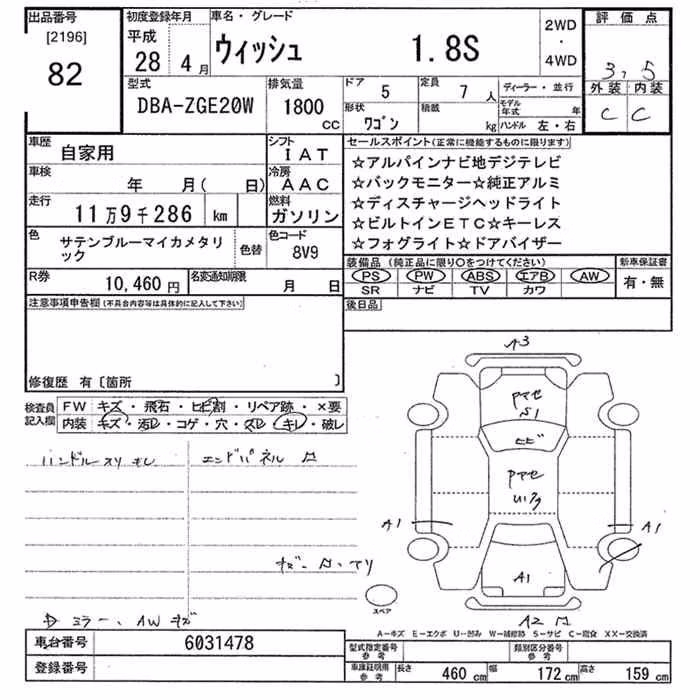 出品番号
[2196]
82
初度登録年月
平成
28 4 月
車名・グレード
ウィッシュ 1.8S
2WD
・
4WD
評価点
3.5
外装 内装
C C
型式
DBA-ZGE20W
排気量
1800
CC
ドア 5
定員 7 人
ディーラー・並行
形状 ワゴン
積載 kg
モデル年式 年
ハンドル 左・右
車歴 自家用
シフト IAT
車検 年 月( 日)
冷房 AAC
走行 11万9千286 km
燃料 ガソリン
色 サテンブルーマイカメタリック
色替
色コード 8V9
R券 10,460 円
名変通知期限 月 日
セールスポイント(正常に機能するものに限ります)
☆アルパインナビ地デジテレビ
☆バックモニター☆純正アルミ
☆ディスチャージヘッドライト
☆ビルトインETC☆キーレス
☆フォグライト☆ドアバイザー
装備品(純正品に限り○をつけてください)
PS PW ABS エアB AW
SR ナビ TV カワ
新車保証書
有・無
後日品
注意事項申告欄(不具合内容等は具体的に記入して下さい)
修復歴 有〔箇所 〕
検査員記入欄
FW キズ・飛石・ヒビ割・リペア跡・×要
内装 キズ・汚レ・コゲ・穴・スレ・キレ・破レ
ハンドルスリ キレ
エンドパネル
ミラー、AW キズ
A3
S1
ヒビ
A1
A1
A1
A2
スペア
A-キズ E-エクボ U-凹み W-補修跡 S-サビ C-腐食 XX-交換済
車台番号 6031478
登録番号
型式指定番号 参考
類別区分番号 参考
車庫証明用 参考
長さ 460 cm 幅 172 cm 高さ 159 cm